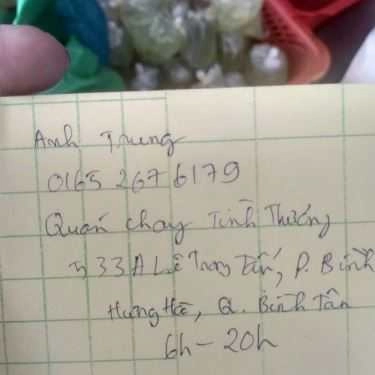 Anh Trung
0165 267 6179
Quán chay Tình Thương
33A Lê Trọng Tấn, P. Bình
Hưng Hòa, Q. Bình Tân
6h - 20h